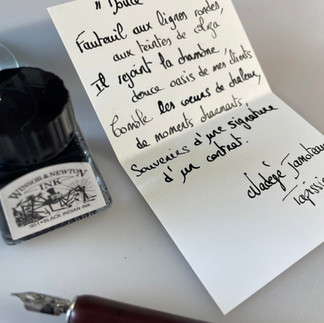 " Douce
Fauteuil aux lignes rondes,
aux teintes de
Il rejoint la chambre,
douce oasis de mes clients
Comble les coeurs de chaleur,
de moments charmants
Souvenirs d'une signature
d'un contrat.
Nadège
WINSOR & NEWTON
INK
BLACK INDIAN INK